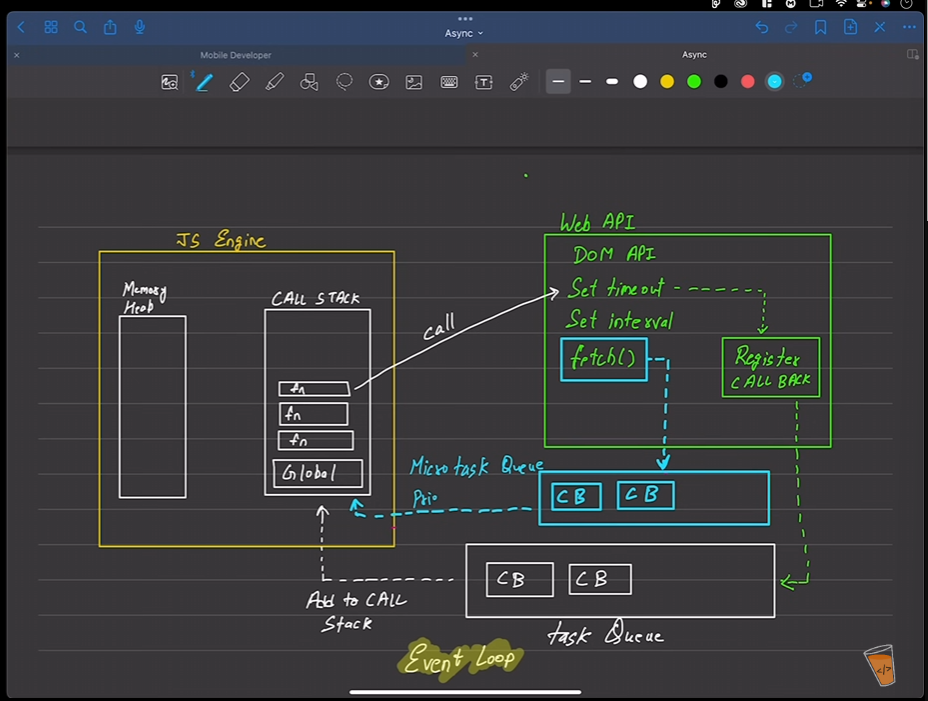 Async
Mobile Developer
Async
JS Engine
Memory
Heap
CALL STACK
fn
fn
fn
Global
call
Web API
DOM API
Set timeout
Set interval
fetch()
Register
CALL BACK
Microtask Queue
Prio
CB
CB
CB
CB
Add to CALL
Stack
task Queue
Event Loop
</>